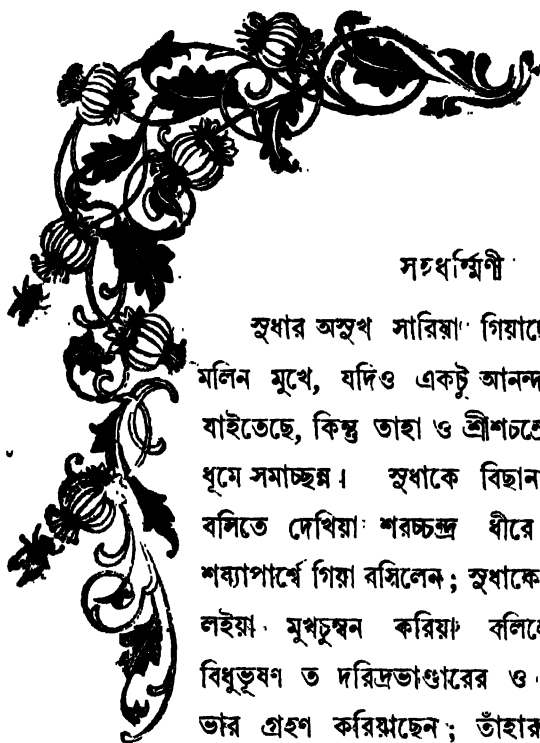 সহধর্ম্মিণী
সুধার অসুখ সারিয়া গিয়াছে
মলিন মুখে, যদিও একটু আনন্দ
যাইতেছে, কিন্তু তাহা ও শ্রীশচন্দ্রে
ধূমে সমাচ্ছন্ন। সুধাকে বিছান
বসিতে দেখিয়া শরচ্চন্দ্র ধীরে
শয্যাপার্শ্বে গিয়া বসিলেন; সুধাকে
লইয়া মুখচুম্বন করিয়া বলিলে
বিধুভূষণ ত দরিদ্রভাণ্ডারের ও
ভার গ্রহণ করিয়াছেন; তাঁহার